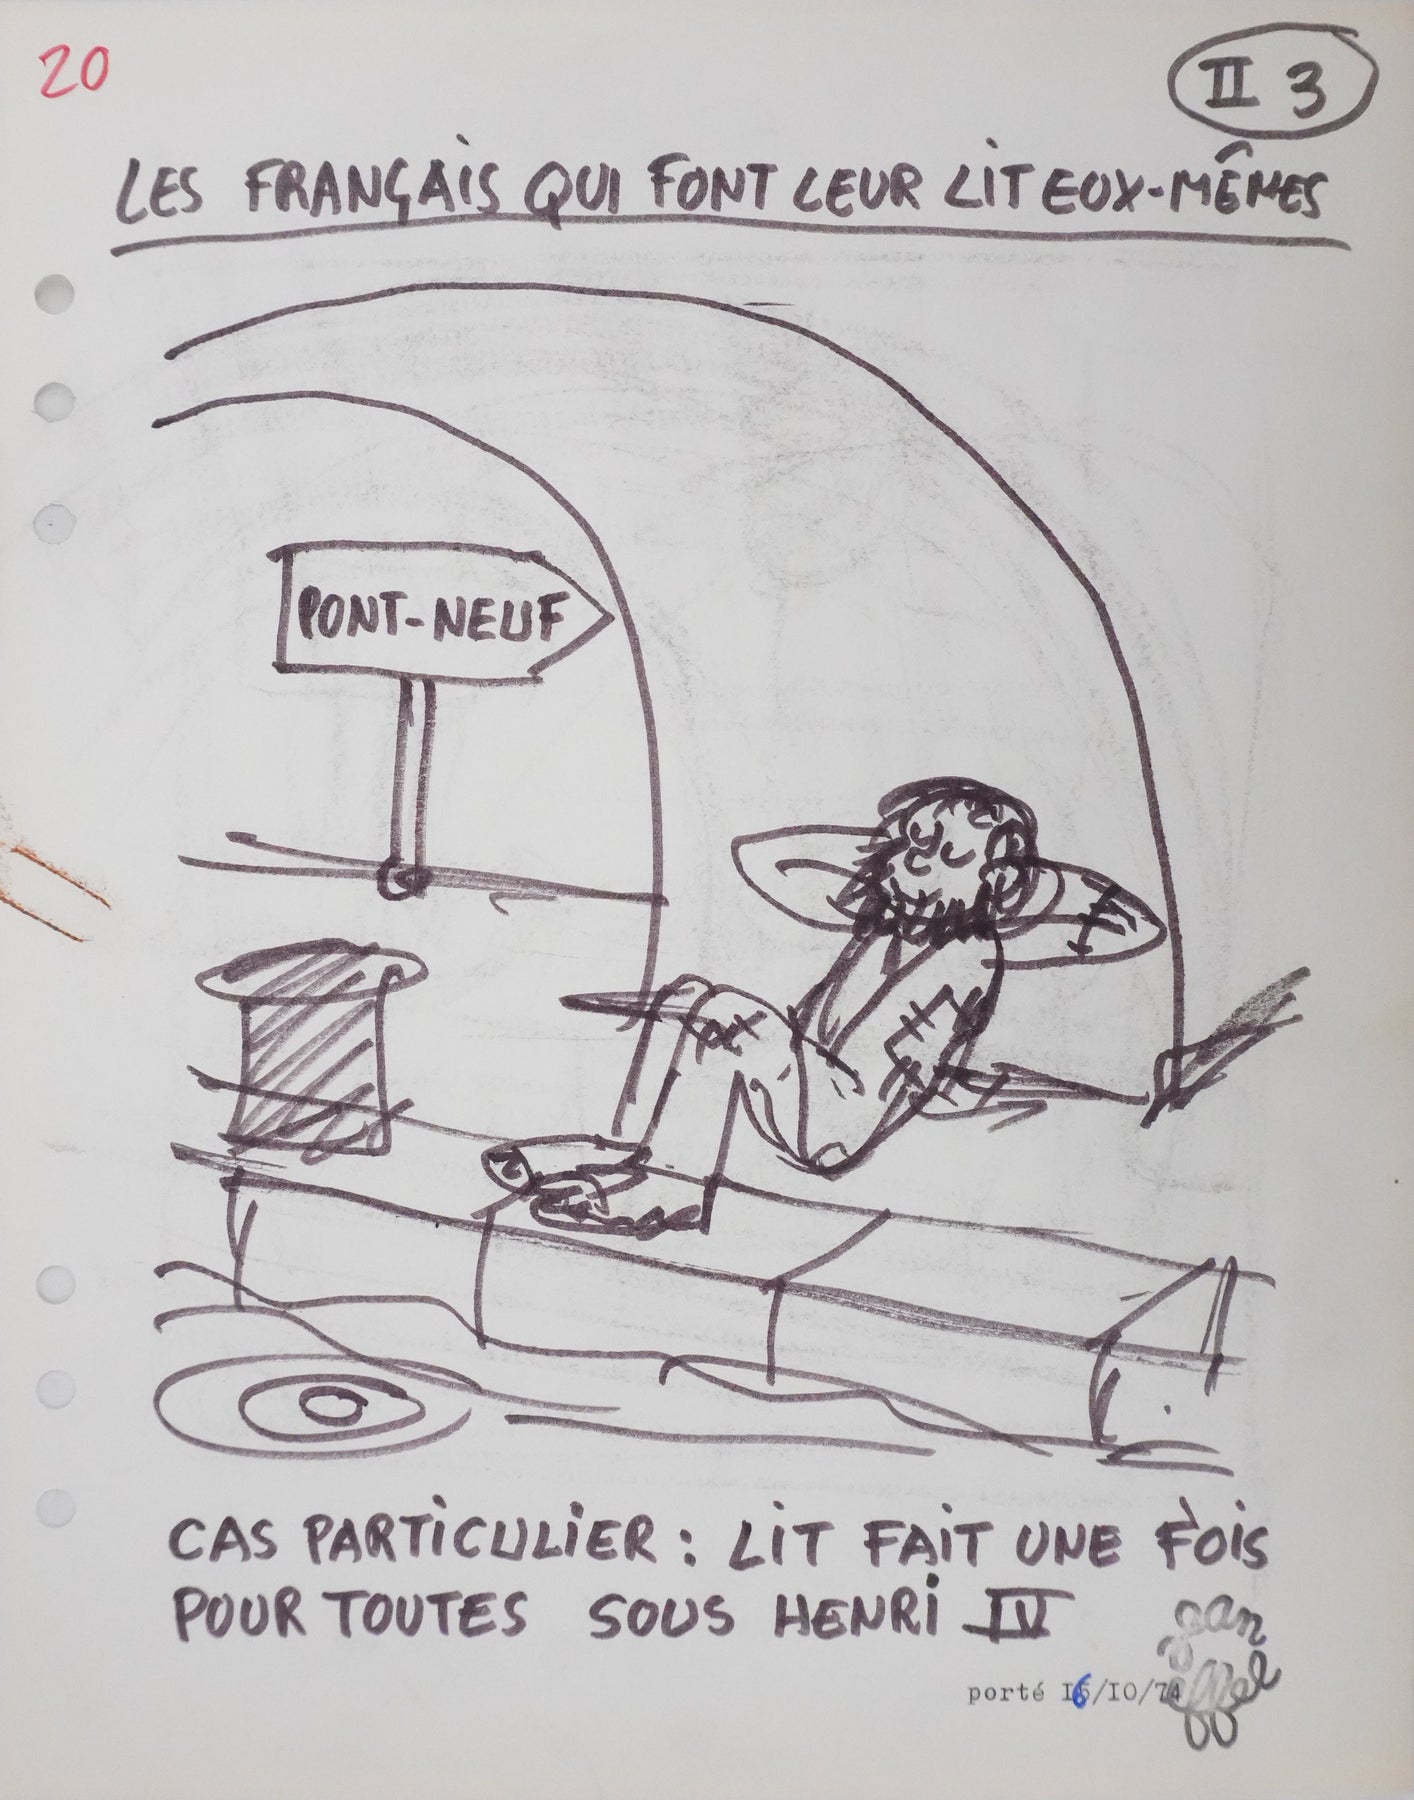 20
II 3
LES FRANÇAIS QUI FONT LEUR LIT EUX-MÊMES
PONT-NEUF
CAS PARTICULIER : LIT FAIT UNE FOIS
POUR TOUTES SOUS HENRI IV
jean
effel
porté I6/IO/74